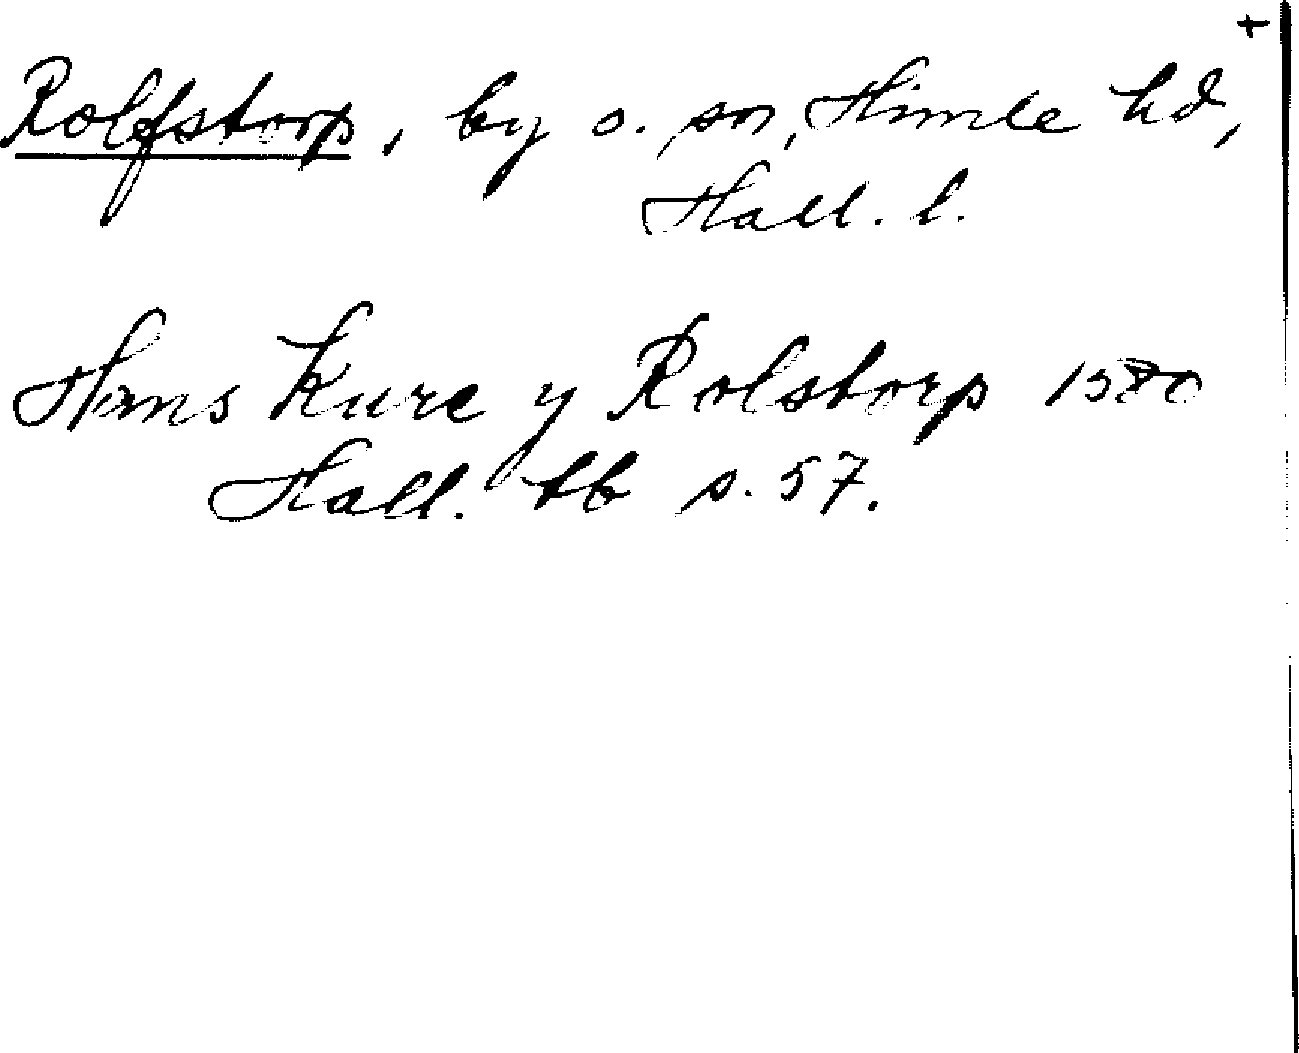 +
Rolfstorp, by o. sn, Himle hd,
Hall. l.
Hans Kure y Rolstorp 1580
Hall. tb s. 57.